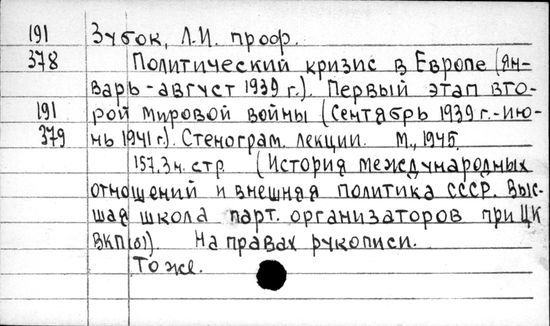 191 Зубок, Л.И. проф.
378 Политический кризис в Европе (Ян-
варь-август 1939 г.). Первый этап вто-
191 рой мировой войны (Сентябрь 1939 г.-Ию-
379 нь 1941 г.). Стенограм. лекции. М., 1945.
157.3н. стр (История международных
отношений и внешняя политика СССР. Выс-
шая школа парт. организаторов при ЦК
ВКП(б)). На правах рукописи.
То же.